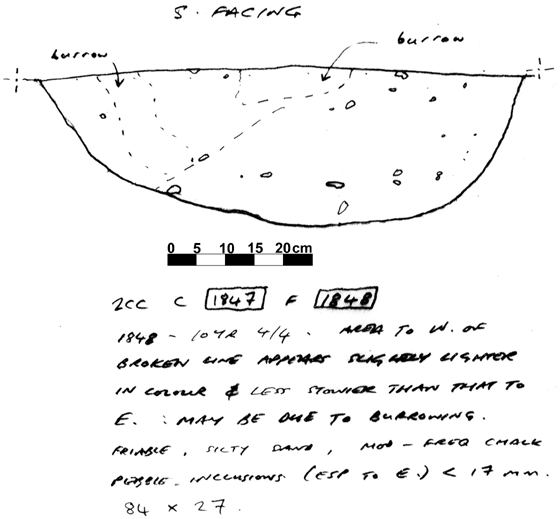 S. FACING
burrow
burrow
0 5 10 15 20cm
2CC C 1847 F 1848
1848 - 10YR 4/4. AREA TO W. OF
BROKEN LINE APPEARS SLIGHLY LIGHTER
IN COLOUR & LESS STONIER THAN THAT TO
E. : MAY BE DUE TO BURROWING.
FRIABLE, SILTY SAND, MOD-FREQ CHALK
PEBBLE INCLUSIONS (ESP TO E.) < 17 mm.
84 x 27.